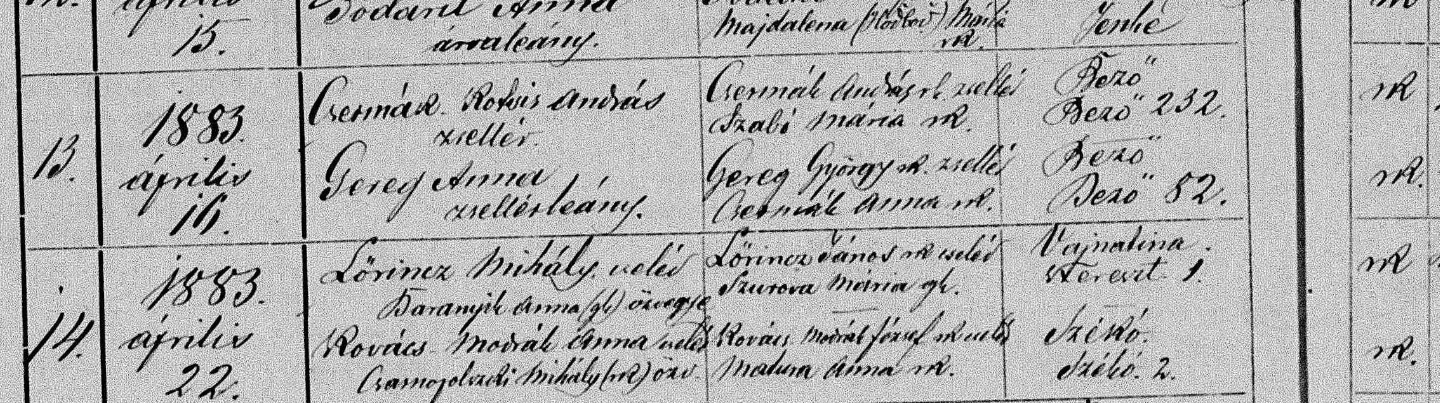 április
15.
Anna
árvaleány.
Majdalena Mária
rk.
Jenke
13.
1883.
április
16.
Csermák András
zsellér.
Gereg Anna
zsellérleány.
Csermák András rk. zsellér
Szabó Mária rk.
Gereg György rk. zsellér
Csermák Anna rk.
Bező
Bező 232.
Bező
Bező 82.
rk
rk.
14.
1883.
április
22.
Lőrincz Mihály cseléd
Anna (gk) özvegye
Kovács Modrák Anna cseléd
Mihály (rk) özv.
Lőrincz János rk cseléd
Szurova Mária gk.
Kovács Modrák József rk cseléd
Matura Anna rk.
Vajnatina.
1.
2.
rk
rk.